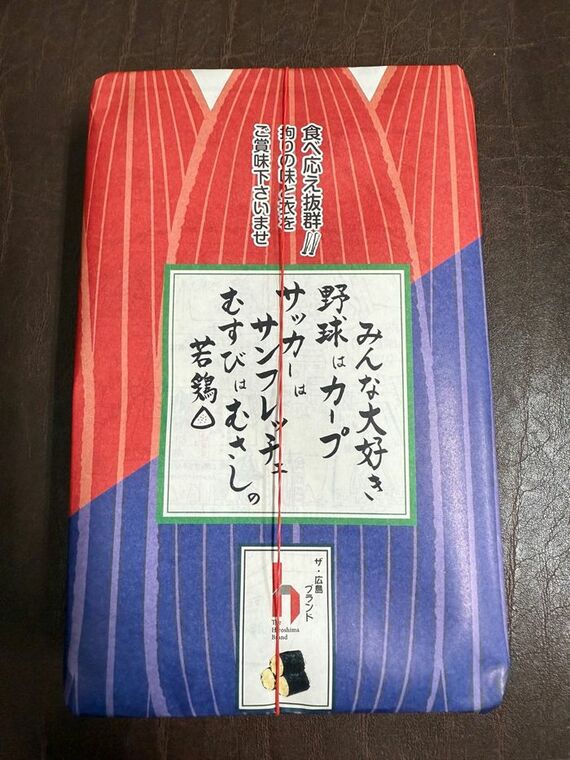 食べ応え抜群!!!
拘りの味と衣を
ご賞味下さいませ
みんな大好き
野球はカープ
サッカーは
サンフレッチェ
むすびはむさしの
若鶏
ザ・広島
ブランド
The
Hiroshima
Brand